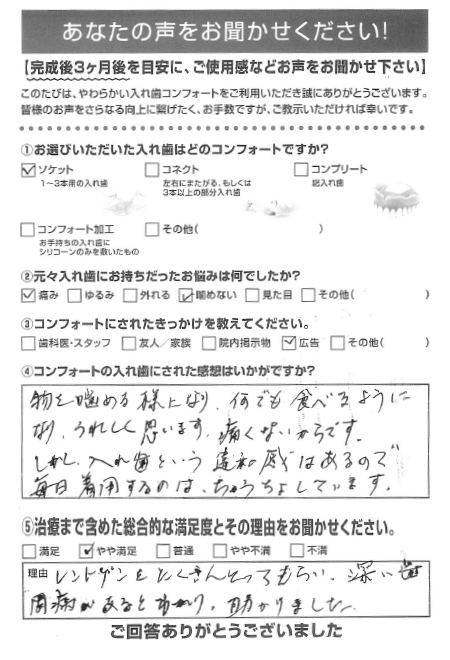 あなたの声をお聞かせください!
【完成後3ヶ月後を目安に、ご使用感などお声をお聞かせ下さい】
このたびは、やわらかい入れ歯コンフォートをご利用いただき誠にありがとうございます。
皆様のお声をさらなる向上に繋げたく、お手数ですが、ご教示いただければ幸いです。
①お選びいただいた入れ歯はどのコンフォートですか?
ソケット コネクト コンプリート
1〜3本用の入れ歯 左右にまたがる、もしくは 総入れ歯
3本以上の部分入れ歯
コンフォート加工 その他( )
お手持ちの入れ歯に
シリコーンのみを敷いたもの
②元々入れ歯にお持ちだったお悩みは何でしたか?
痛み ゆるみ 外れる 噛めない 見た目 その他( )
③コンフォートにされたきっかけを教えてください。
歯科医・スタッフ 友人/家族 院内掲示物 広告 その他( )
④コンフォートの入れ歯にされた感想はいかがですか?
物を噛める様になり、何でも食べるように
なり、うれしく思います。痛くないからです。
しかし、入れ歯という違和感はあるので
毎日着用するのは、ちゅうちょしています。
⑤治療まで含めた総合的な満足度とその理由をお聞かせください。
満足 やや満足 普通 やや不満 不満
理由 レントゲンをたくさんとってもらい、深い歯
周病があるとわかり、助かりました。
ご回答ありがとうございました